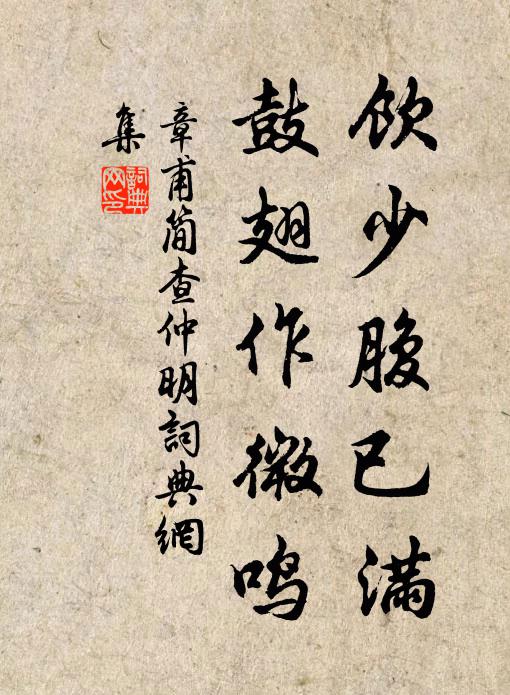 饮少腹已满
鼓翅作微鸣
章甫简查仲明詞典網
集
詞典
网印